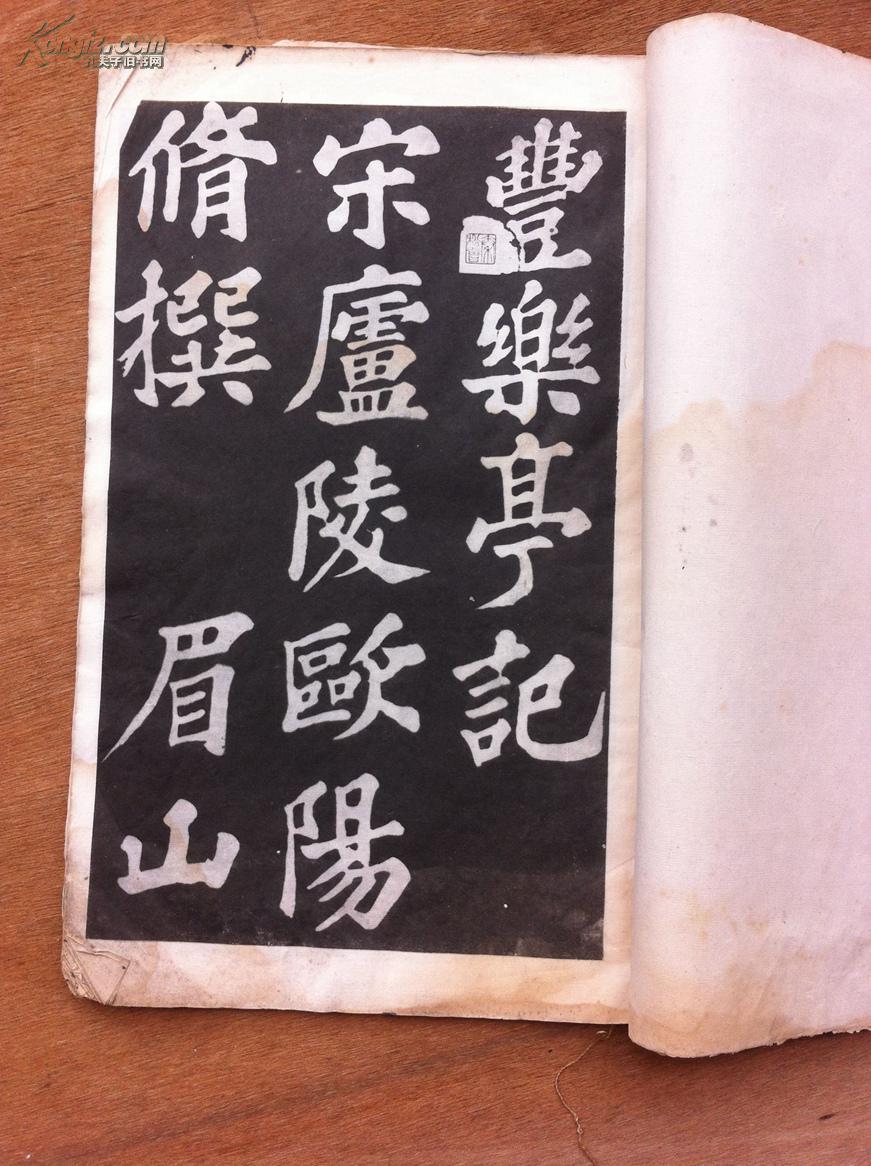 豐樂亭記
宋廬陵歐陽
脩撰 眉山
Kongfz.com
孔夫子旧书网